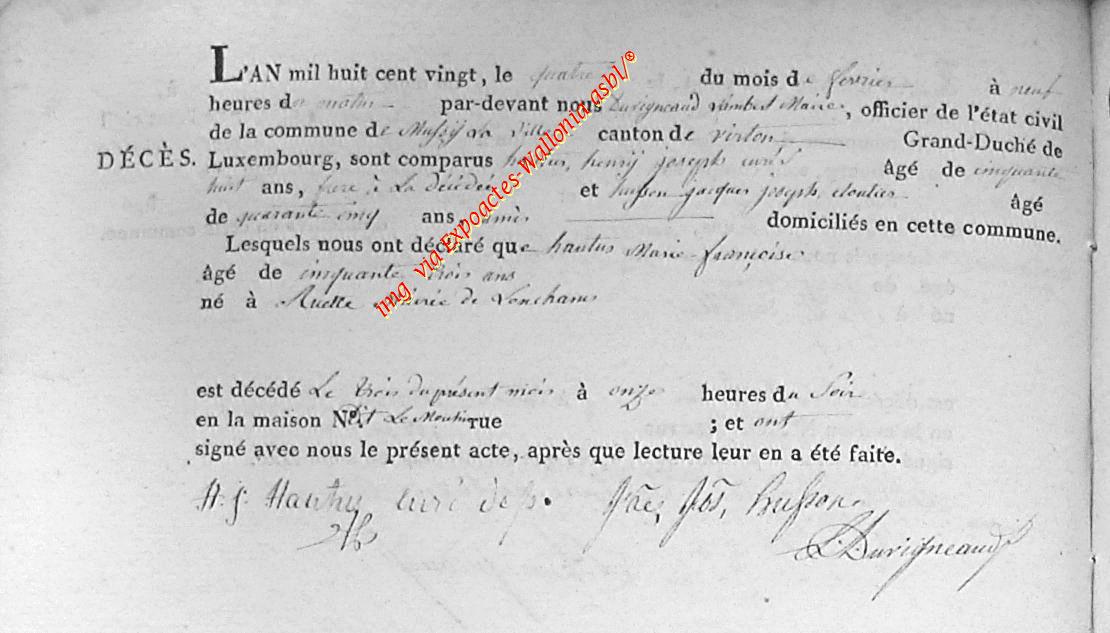 L'AN mil huit cent vingt, le quatre du mois de fevrier à neuf
heures du matin par-devant nous Duvigneaud Lambert Marie, officier de l'état civil
de la commune de Mussy la Ville canton de virton, Grand-Duché de
DÉCÈS. Luxembourg, sont comparus henry joseph curé âgé de cinquante
huit ans, frere à La décédée et husson jacques joseph, cloutier âgé
de quarante cinq ans, amis domiciliés en cette commune.
Lesquels nous ont déclaré que hautus Marie françoise
âgé de cinquante trois ans
né à Ruette de Lonchams
est décédé Le trois du présent mois à onze heures du Soir
en la maison N° dit Le rue ; et ont
signé avec nous le présent acte, après que lecture leur en a été faite.
H. J. curé Jac, Jos, husson
L. Duvigneaud
img via Expoactes-Wallonia.asbl/®